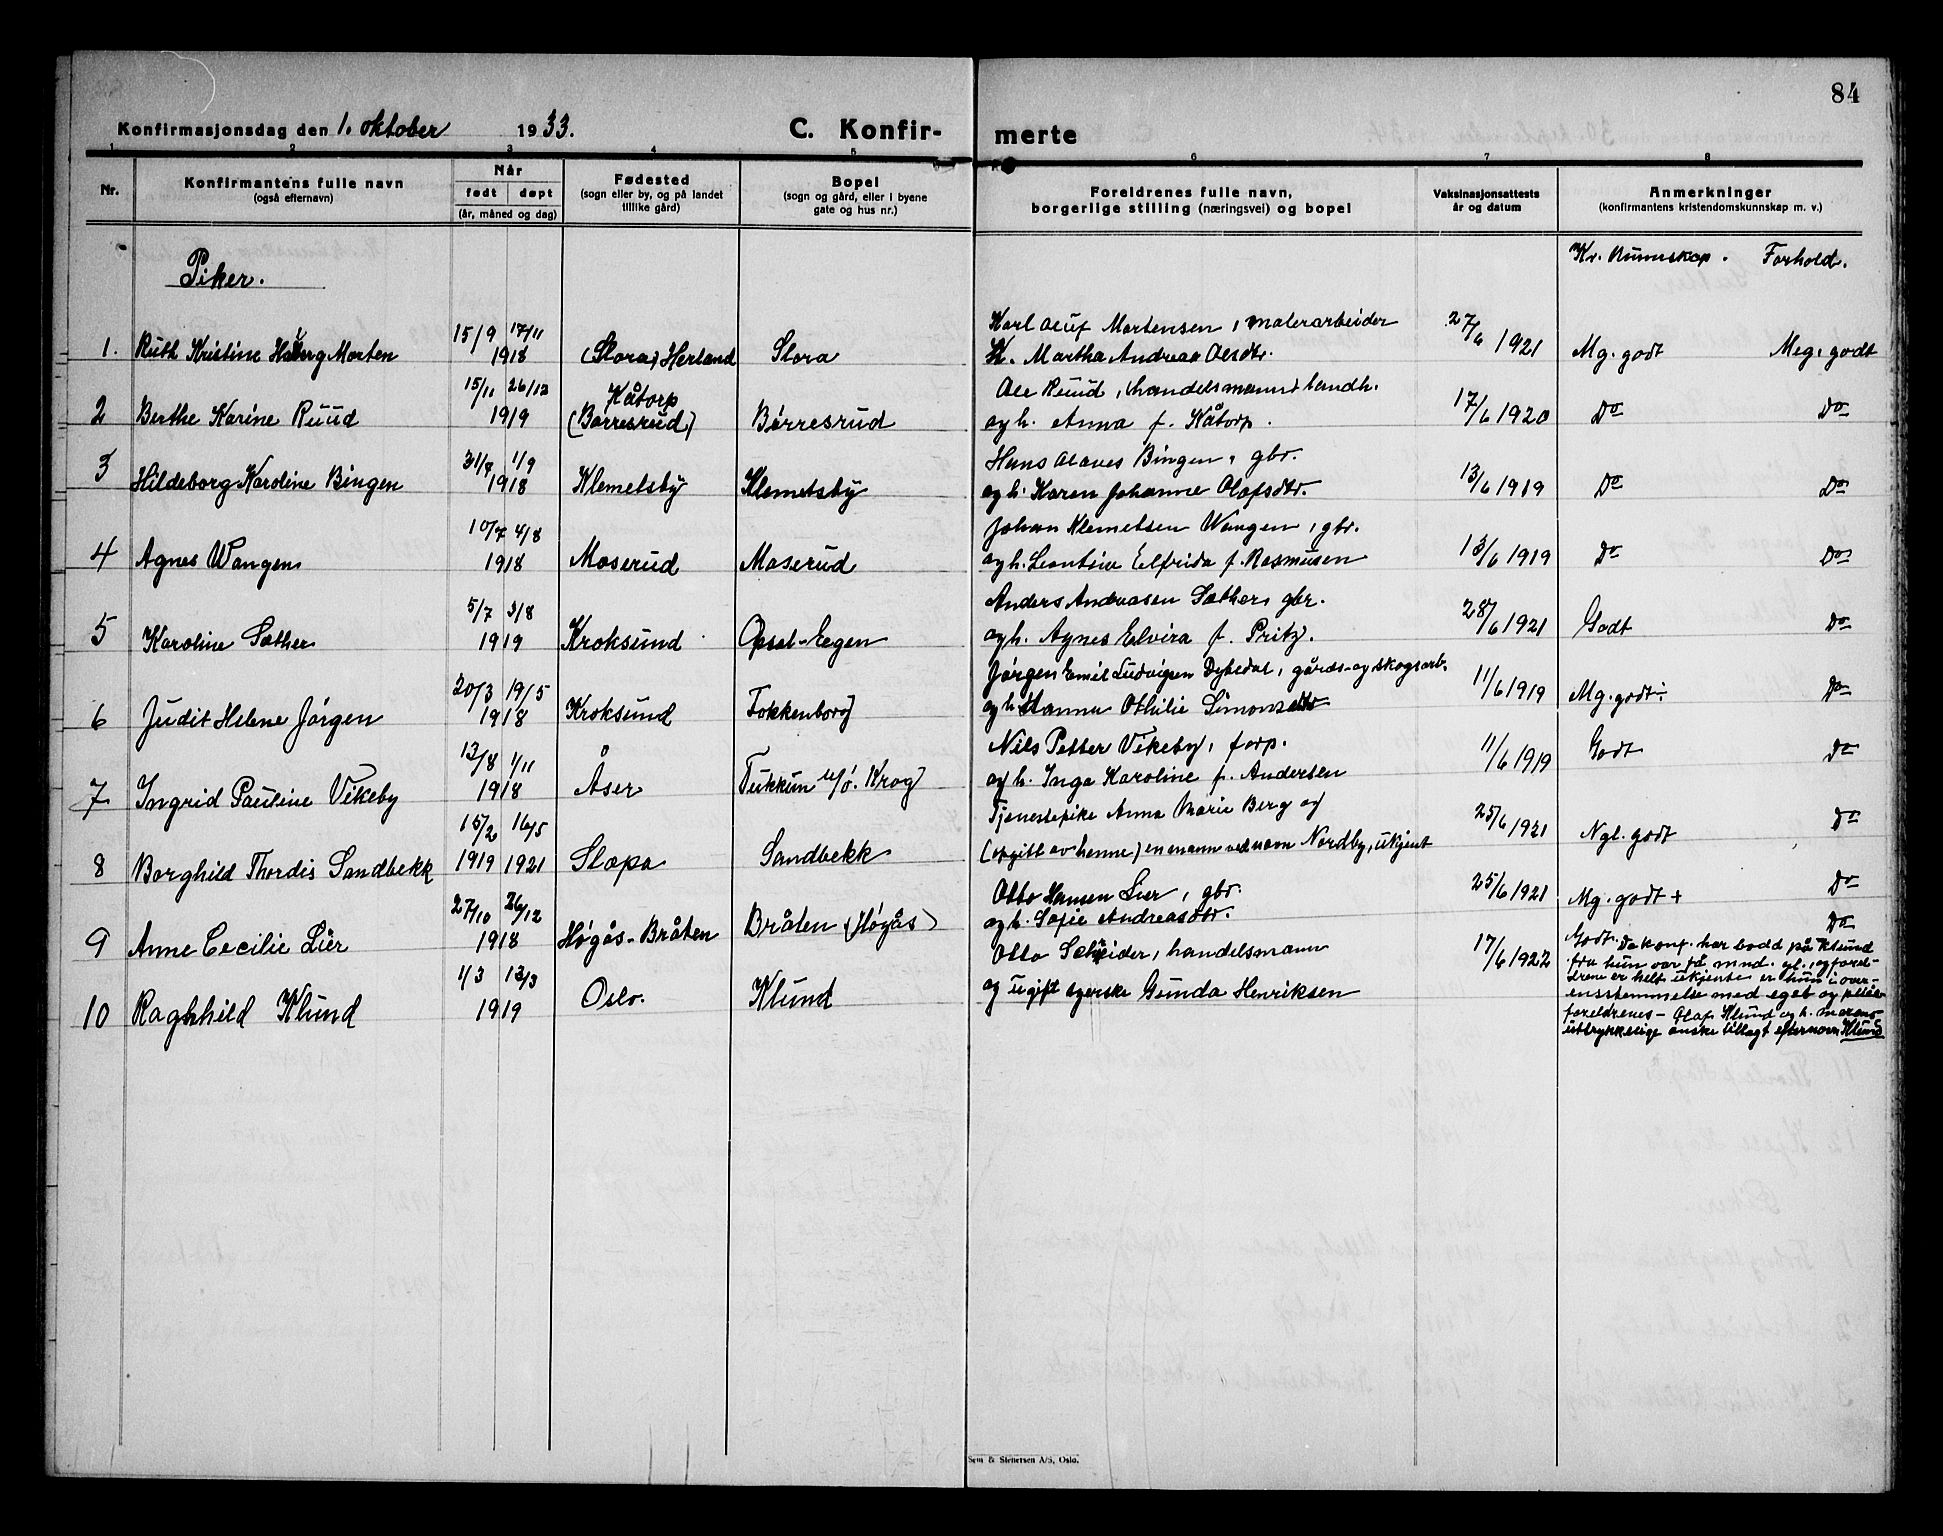 84
Konfirmasjonsdag den 1. oktober 1933. C. Konfir- merte
1 2 3 4 5 6 7 8
Nr. Konfirmantens fulle navn (også efternavn) Når født døpt (år, måned og dag) Fødested (sogn eller by, og på landet tillike gård) Bopel (sogn og gård, eller i byene gate og hus nr.) Foreldrenes fulle navn, borgerlige stilling (næringsvei) og bopel Vaksinasjonsattests år og datum Anmerkninger (konfirmantens kristendomskunnskap m. v.)
Piker. Kr. kunnskap. Forhold.
15/9 17/11 Karl Oluf Martensen, malerarbeider 27/6 1921
1. Ruth Kristine Morten 1918 (Slora) Herland Slora Martha Andrea Olsdtr. Mg. godt Meg. godt
15/11 26/12 Kåtorp Ole Ruud, handelsmann, landh.
2 Berthe Karine Ruud 1919 (Børresrud) Børresrud og h. Anna f. Kåtorp. 17/6 1920 Do Do
31/7 1/9 Hans Olaves Bingen, gbr.
3 Hildeborg Karoline Bingen 1918 Klemetsby Klemetsby og h. Karen Johanne Olafsdtr. 13/6 1919 Do Do
10/7 4/8 Johan Klemetsen Wangen, gbr.
4 Agnes Wangen 1918 Moserud Moserud og h. Leontine Elfrida f. Rasmussen 13/6 1919 Do Do
5/7 3/8 Anders Andreasen Sæther, gbr.
5 Karoline Sæther 1919 Kroksund Opsal-Eegen og h. Agnes Elvira f. Pritz. 28/6 1921 Godt Do
20/3 19/5 Jørgen Emil Ludvigsen Dybedal, gårds- og skogsarb.
6 Judit Helene Jørgen 1918 Kroksund Fokkenborg og h. Hanna Othilie Simonsdtr 11/6 1919 Mg. godt ÷ Do
13/8 1/11 Nils Petter Vikeby, forp.
7 Ingrid Pauline Vikeby 1918 Åser Tukkun u/ø. Krog og h. Inga Karoline f. Andersen 11/6 1919 Godt Do
15/2 16/5 Tjenestepike Anna Marie Berg og
8 Borghild Thordis Sandbekk 1919 1921 Slæpa Sandbekk (opgitt av henne) en mann ved navn Nordby, ukjent 25/6 1921 Ngl. godt Do
27/10 26/12 Otto Hansen Lier, gbr.
9 Anne Cecilie Lier 1918 Høgås-Bråten Bråten (Høgås) og h. Sofie Andreasdtr. 25/6 1921 Mg. godt + Do
1/3 13/3 Otto Schneider, handelsmann
10 Raghhild Klund 1919 Oslo. Klund og ugift syerske Gunda Henriksen 17/6 1922 Godt. Do
Da konf. har bodd på Klund
fra hun var få mnd. gl., og foreld-
drene er helt ukjente er hun i over-
ensstemmelse med eget og pleie-
foreldrenes - Olaf Klund og h. Marens -
uttrykkelige ønske tillagt efternavn Klund
Sem & Stenersen A/S, Oslo.